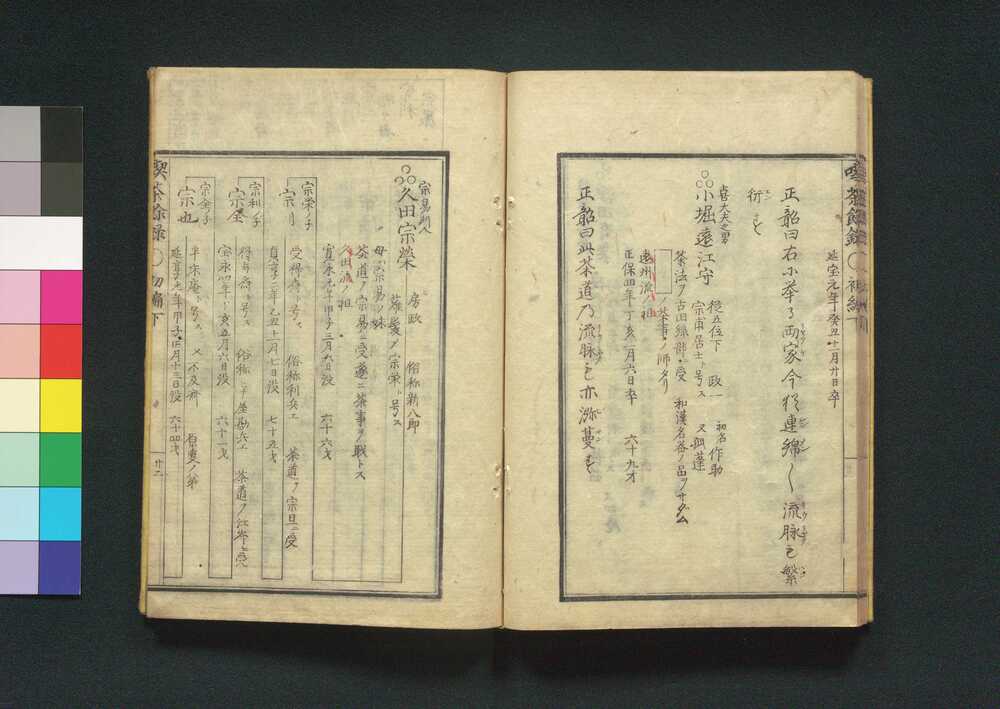 延宝元年癸丑十一月廿日卒
正韶曰右小挙ル両家今ニ連綿シ流脈モ繁
衍セリ
喜太夫之男
小堀遠江守
従五位下 政一 初名作助
宗甫居士ト号ス 又
茶法ヲ古田織部ニ受 和漢名器ノ品ヲサダム
ノ茶事ノ師タリ
遠州流ノ祖
正保四年丁亥二月六日卒 六十九才
正韶曰此茶道乃流脈モ亦 蔓セリ
宗易聟
久田宗榮
房政 俗称新八郎
薙髪シ宗榮ト号ス
母ハ宗易ノ妹
茶道ヲ宗易ニ受遂ニ茶事ヲ職トス
久田流ノ祖
寛永元年甲子三月六日没 六十六才
宗榮ノ子
宗利
受得斎ト号ス 俗称利兵エ 茶道ヲ宗旦ニ受
貞享二年乙丑十一月七日没 七十五才
宗利ノ子
宗全
得誉斎ト号ス 俗称 勘兵エ 茶道ヲ江岑ニ受
宝永四年丁亥五月六日没 六十一才
宗全ノ子
宗也
半床庵ト号ス 又不及斎 原叟ノ弟
延享元年甲子正月十三日没 六十四才
喫茶餘録 初編下
廿二